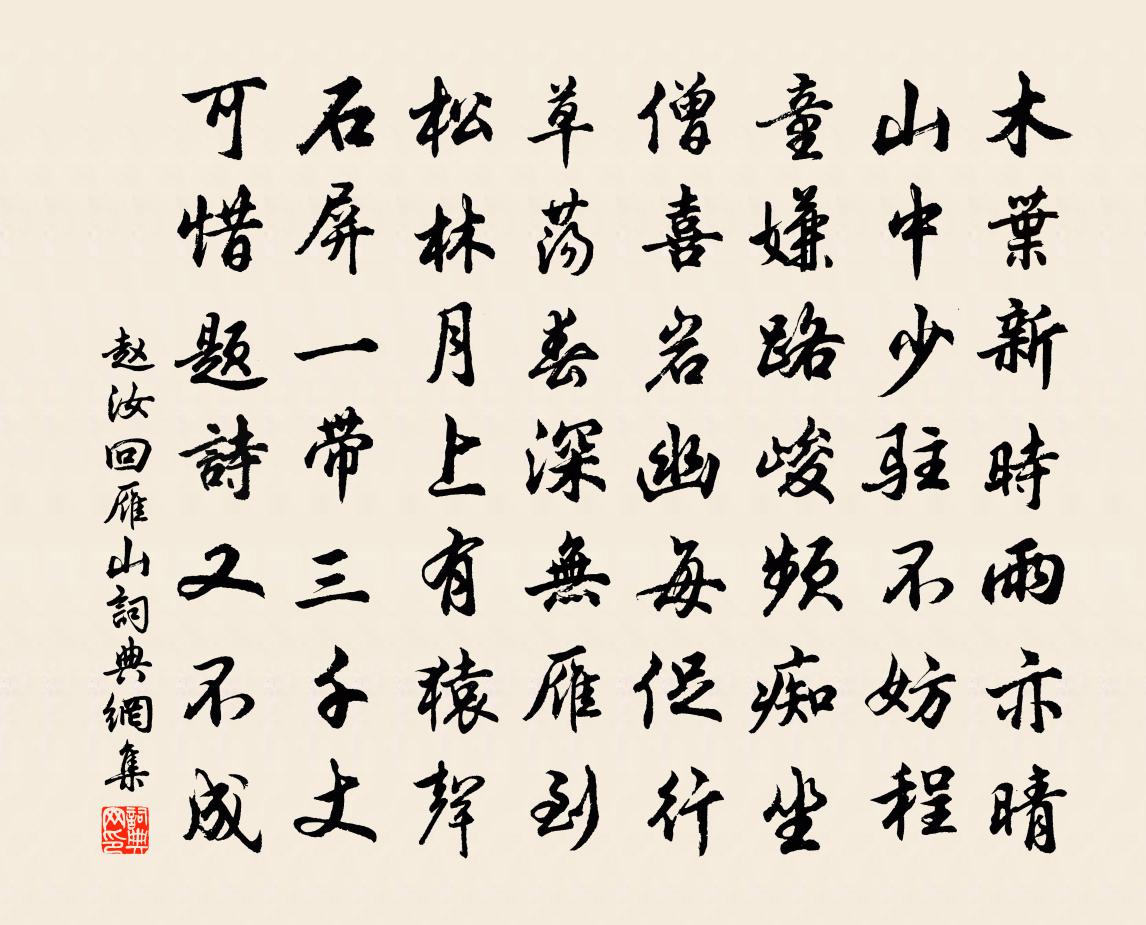 木葉新時雨亦晴
山中少駐不妨程
童嫌路峻頻痴坐
僧喜岩幽每促行
草蕩春深無雁到
松林月上有猿聲
石屏一带三千丈
可惜題詩又不成
赵汝回雁山詞典網集
詞典网印